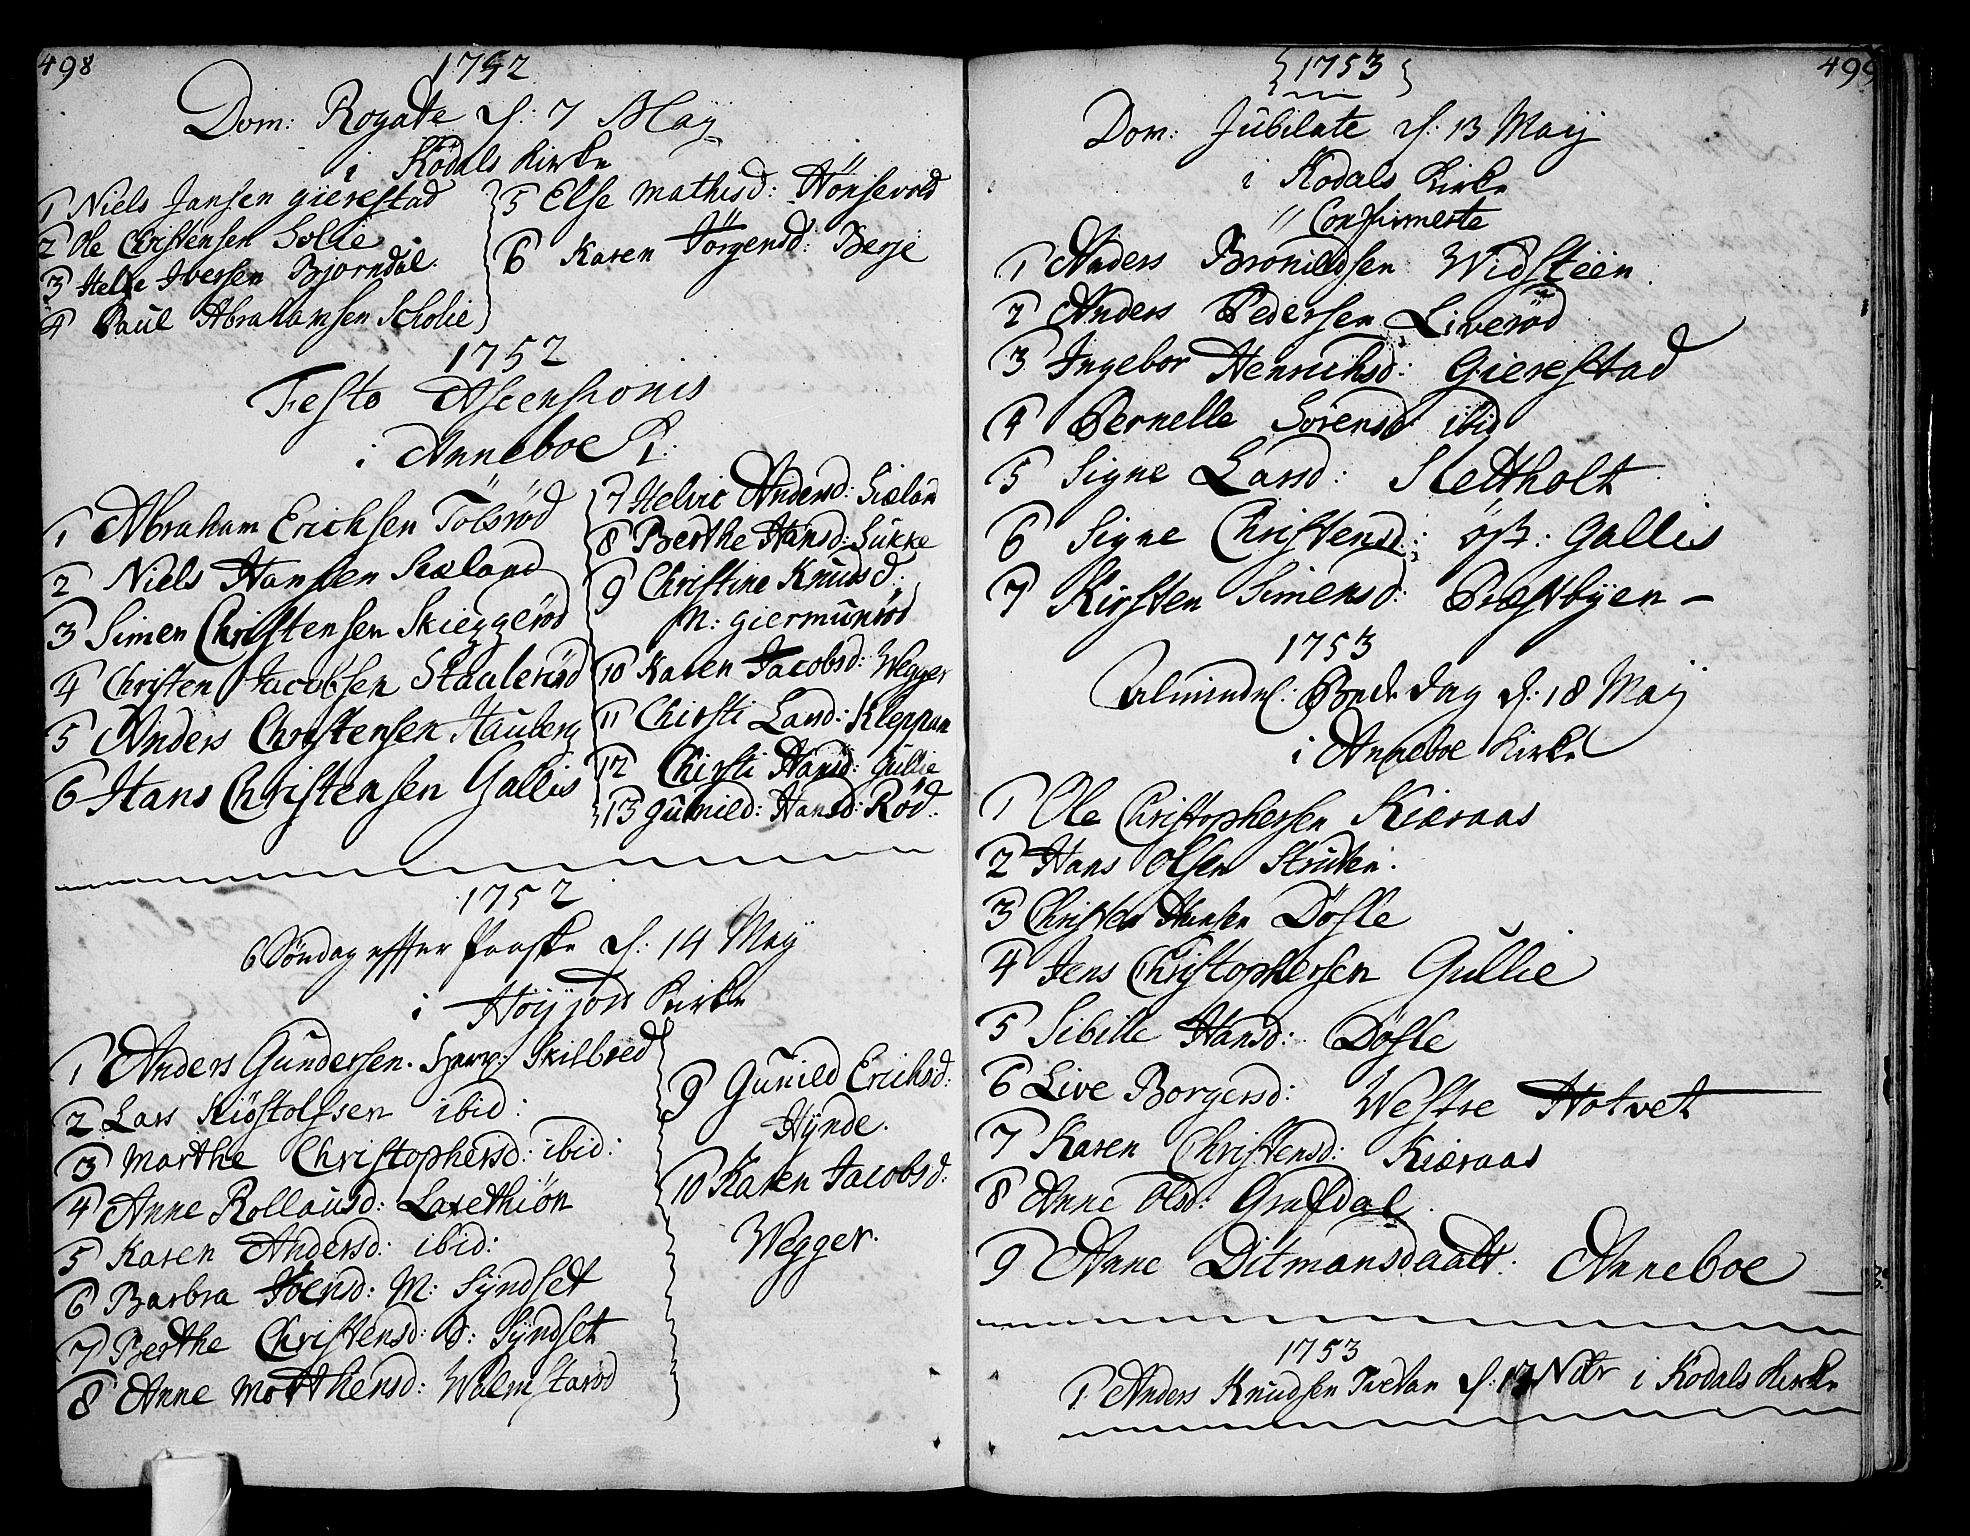 498
1752
Dom: Rogate d: 7 May
i Kodals Kirke
1 Niels Jansen gierestad
2 Ole Christensen Solie
3 Helje Iversen Bjorndal
4 Paul Abrahamsen Scholie
5 Else Mathisd: Hönsevold
6 Karen Jörgensd: Berje
1752
Festo Ascensionis
i Anneboe K:
1 Abraham Erichsen Tölsröd
2 Niels Hansen Sæland
3 Simen Christensen Skieggeröd
4 Christen Jacobsen Skauleröd
5 Anders Christensen Hauberg
6 Hans Christensen Gallis
7 Helvic Andersd: Siæland
8 Berthe Hansd: Sukke
9 Christine Knudsd:
M: giermundröd
10 Karen Jacobsd: Wegger
11 Chirsti Larsd: Kleppan
12 Chirsti Hansd: Gullie
13 gunild: Hansd: Röd:
1752
6 Söndag effter Paaske d: 14 May
i Höyjord Kirke
1 Anders Gundersen Skilbred
2 Lars Kiöstolfsen ibid:
3 Marthe Christophersd: ibid:
4 Anne Rollausd: Laxethiön
5 Karen Andersd: ibid:
6 Barbra Joensd: M: Syndset
7 Berthe Christensd: S: Syndset
8 Anne Motthensd: Walmstaröd
9 Gunild Erichsd:
Hynde.
10 Karen Jacobsd:
Wegger.
499
1753
Dom: Jubilate d: 13 May
i Kodals Kirke
// Confirmerte
1 Anders Bronildsen Widsteen
2 Anders Pedersen Liveröd
3 Ingebor Henrichsd: Gierestad
4 Pernelle Sörensd ibid
5 Signe Larsd: Slettholt
6 Signe Christensd: öst: Gallis
7 Kirsten Simensd: Præstbyen -
1753
Almindel: Bede dag d: 18 May
i Anneboe Kirke
1 Ole Christophersen Kiæraas
2 Hans Olsen Struten.
3 Christen Hansen Döfle
4 Jens Christophersen Gullie
5 Sibille Hansd: Döfle
6 Live Borgersd: Westre Hotvet
7 Karen Christensd: Kiæraas
8 Anne Olsd: Grafdal
9 Anne Ditmansdaatt: Anneboe
1753
1 Anders Knudsen Tvetan d: i Kodals Kirke